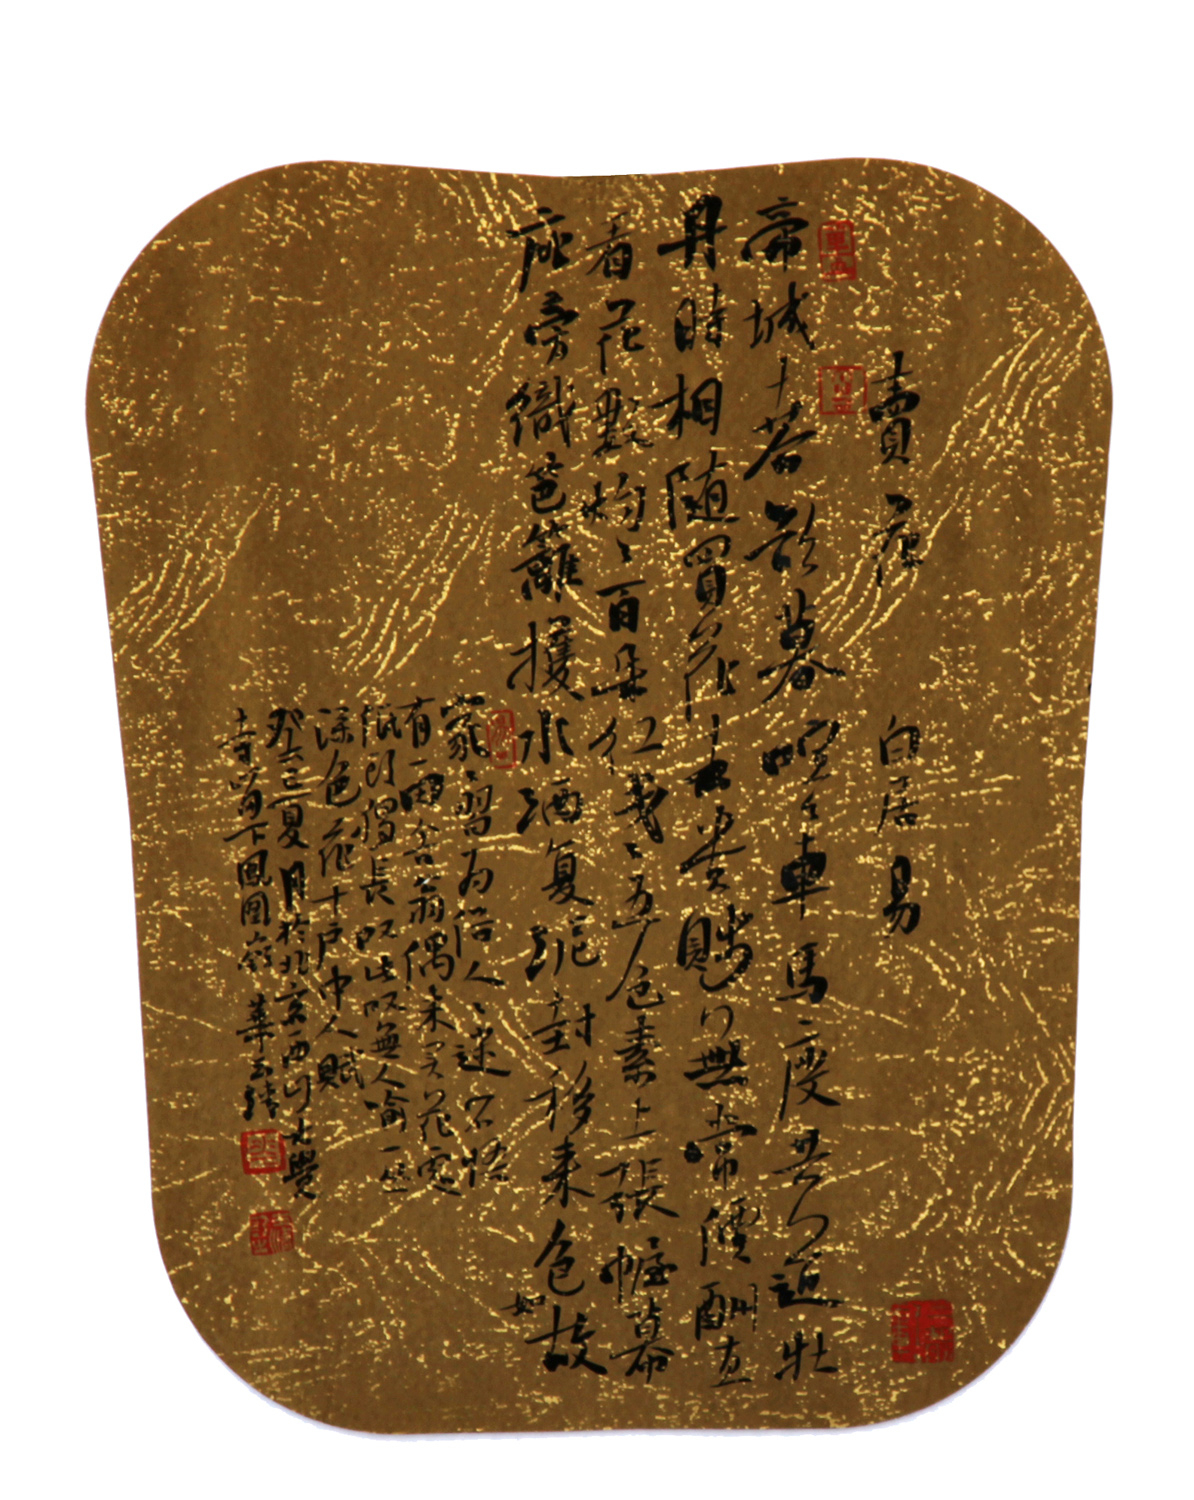 賣花 白居易
帝城春欲暮喧〻車馬度共道牡
丹時相随買花去貴賤無常價酬直
看花數灼〻百朵紅戔〻五色素上張幄幕
庇旁織笆籬護水洒复泥封移来色如故
家〻習為俗人〻迷不悟
有一田舍翁偶来买花處
低頭獨長叹此叹無人喻一丛
深色花十户中人賦
癸巳夏月於北京西山大覺
寺 下鳳凰嶺 華玉